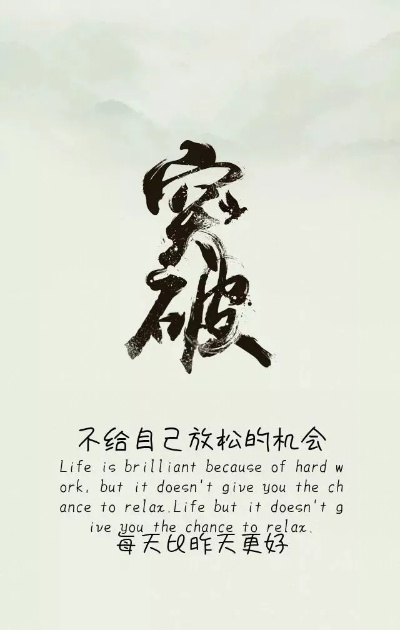 突
破
不给自己放松的机会
Life is brilliant because of hard w
ork, but it doesn't give you the ch
ance to relax.Life but it doesn't g
ive you the chance to relax.
每天比昨天更好